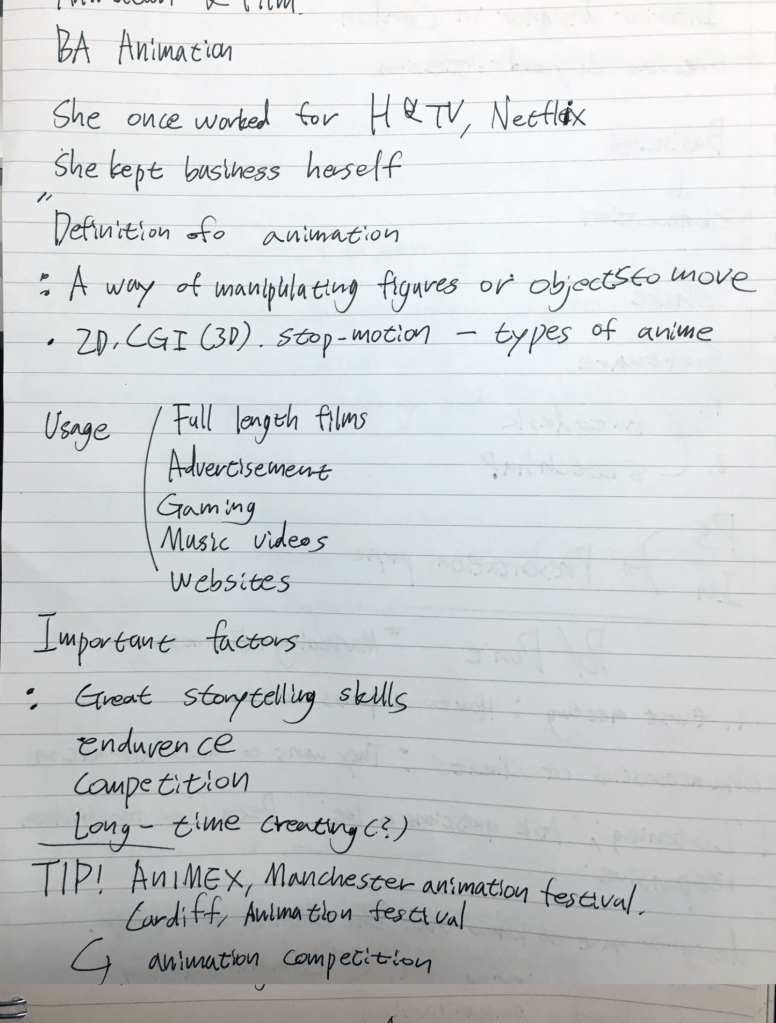 BA Animation
She once worked for H&TV, Netflix
She kept business herself
"
Definition ofo animation
: A way of maniplulating figures or objectsto move
· 2D, CGI (3D). Stop-motion – types of anime
Usage Full length films
Advertisement
Gaming
Music videos
Websites
Important factors
: Great storytelling skills
endurence
Competition
Long-time creating(?)
TIP! ANIMEX, Manchester animation festival.
Cardiff, Animation festival
↳ animation competition